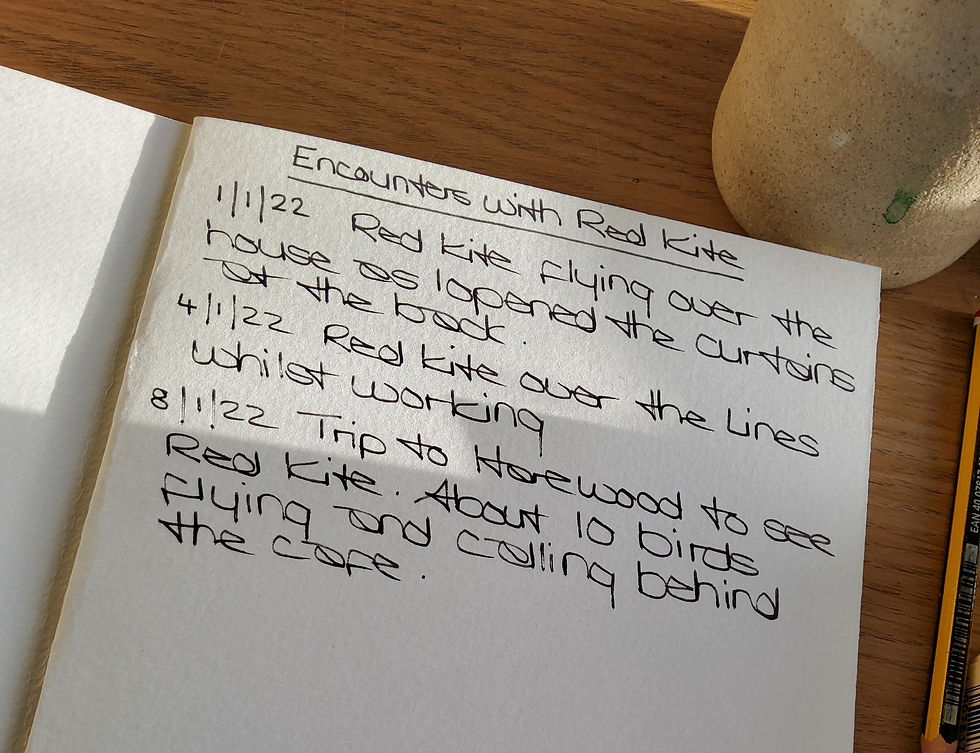 Encounters with Red Kite
1/1/22 Red Kite flying over the
house as I opened the curtains
at the back.
4/1/22 Red Kite over the Lines
whilst working
8/1/22 Trip to Harewood to see
Red Kite. About 10 birds
flying and calling behind
the cafe.